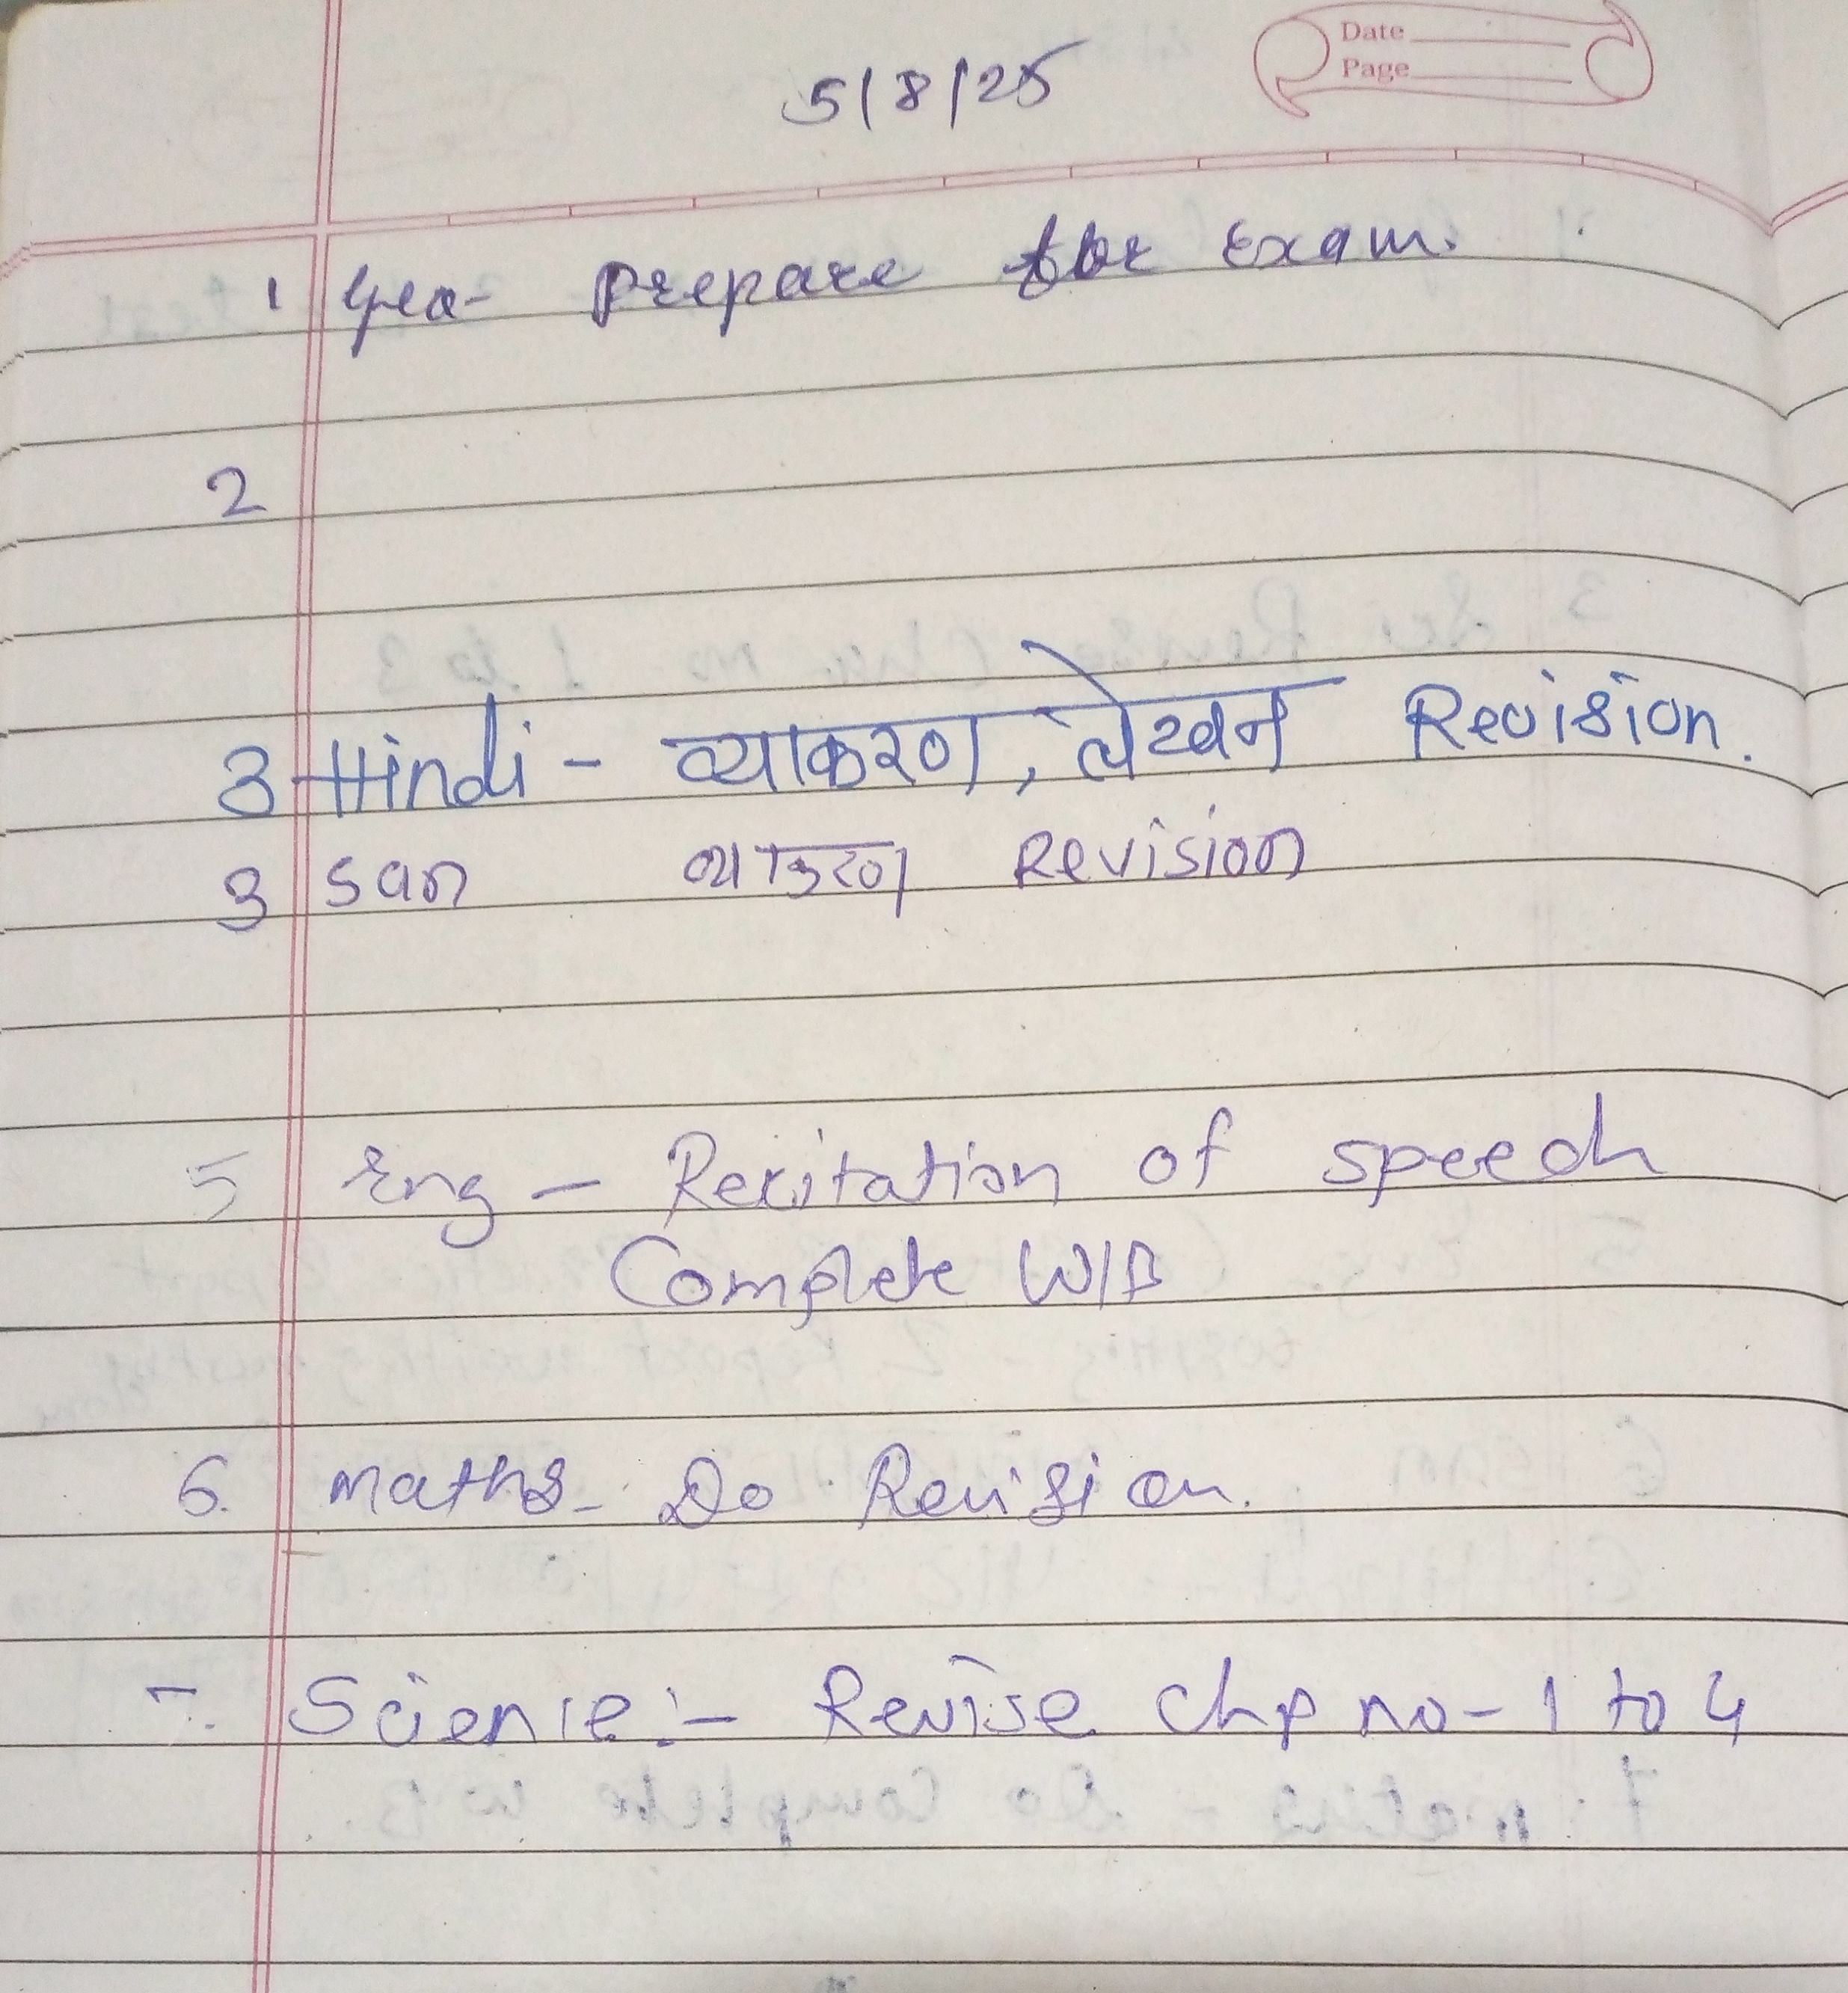 Date
Page
5/8/25
1 Geo- Prepare for Exam.
2
3 Hindi - व्याकरण, लेखन Revision.
3 San व्याकरण Revision
5 Eng - Recitation of speech
Complete W/B
6. Maths- Do Revision.
7. Science:- Revise Chp no- 1 to 4